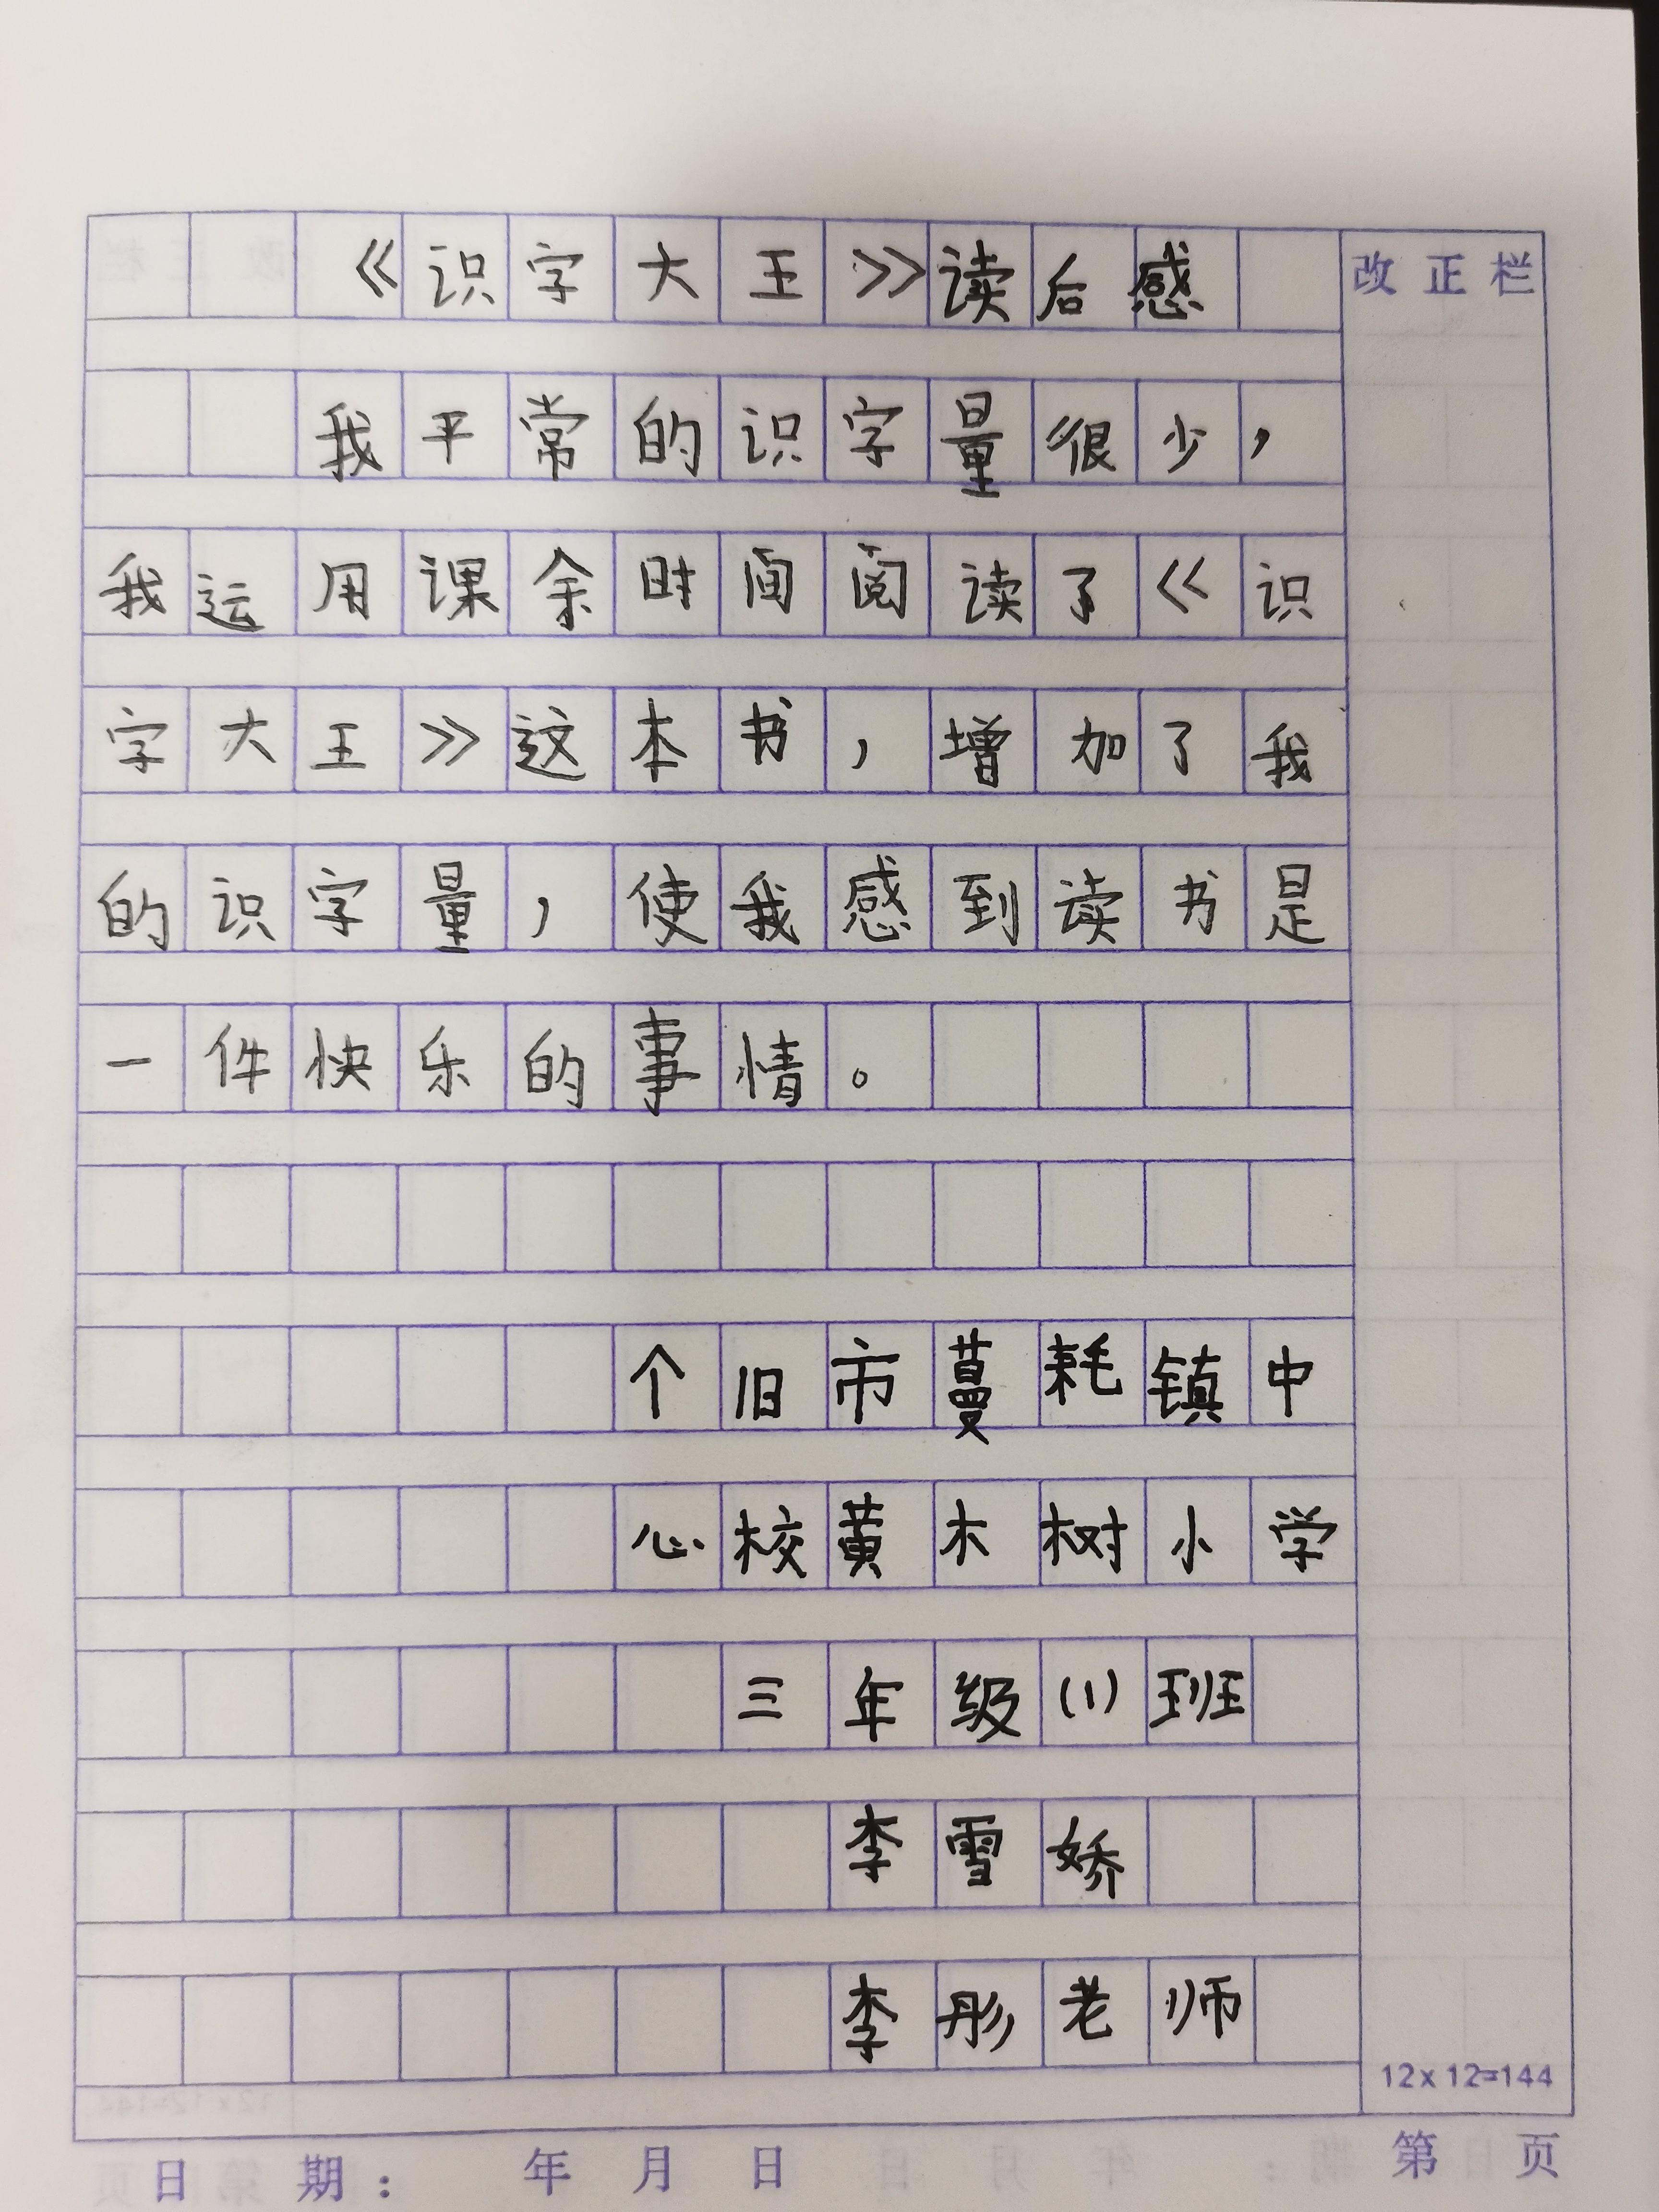 《识字大王》读后感
改正栏
我平常的识字量很少，
我运用课余时间阅读了《识
字大王》这本书，增加了我
的识字量，使我感到读书是
一件快乐的事情。
个旧市蔓耗镇中
心校黄木树小学
三年级(1)班
李雪娇
李彤老师
12×12=144
日期： 年 月 日
第 页